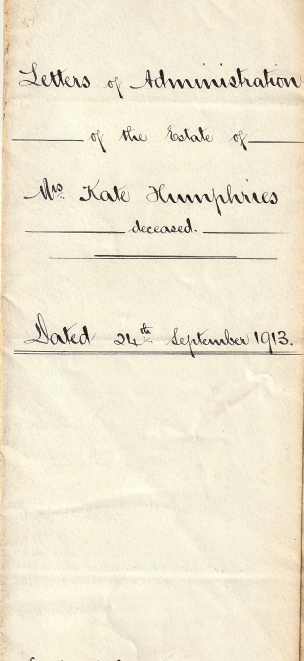 Letters of Administration
of the Estate of
Mrs. Kate Humphries
deceased.
Dated 24th September 1913.